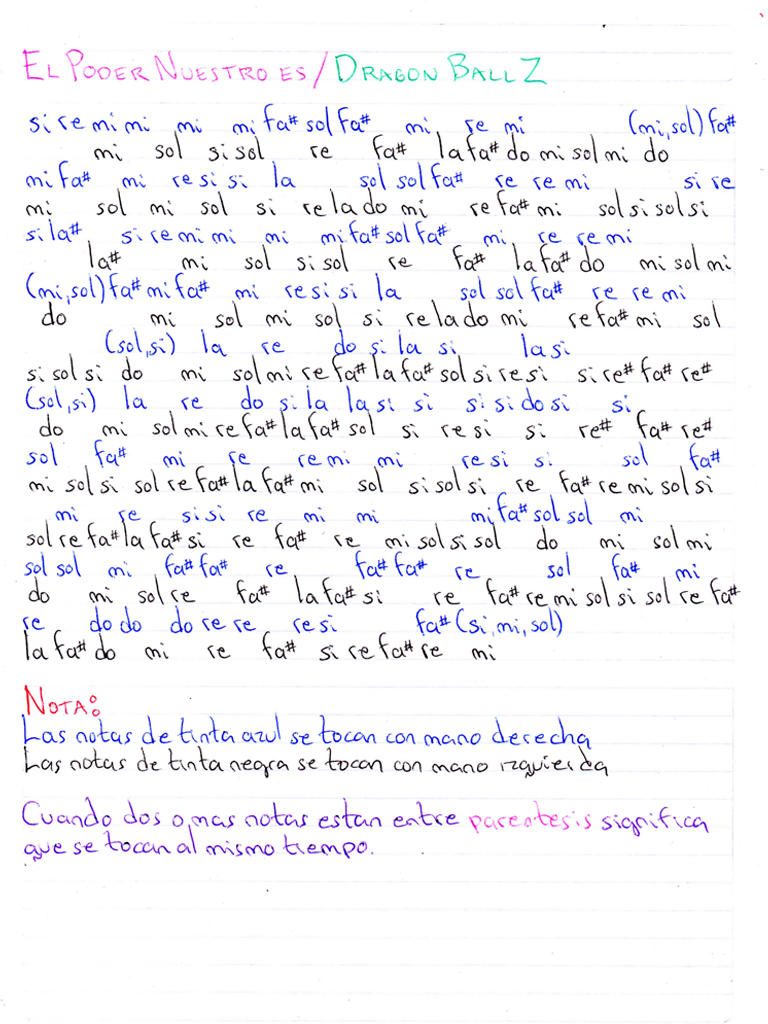 EL PODER NUESTRO ES / DRAGON BALL Z
si re mi mi mi mi fa# sol fa# mi re mi (mi, sol) fa#
mi sol si sol re fa# la fa# do mi sol mi do
mi fa# mi re si si la sol sol fa# re re mi si re
mi sol mi sol si re la do mi re fa# mi sol si sol si
si la# si re mi mi mi mi fa# sol fa# mi re re mi
la# mi sol si sol re fa# la fa# do mi sol mi
(mi, sol) fa# mi fa# mi re si si la sol sol fa# re re mi
do mi sol mi sol si re la do mi re fa# mi sol
(sol, si) la re do si la si la si
si sol si do mi sol mi re fa# la fa# sol si re si si re# fa# re#
(sol, si) la re do si la la si si si si do si si
do mi sol mi re fa# la fa# sol si re si si re# fa# re#
sol fa# mi re re mi mi re si si sol fa#
mi sol si sol re fa# la fa# mi sol si sol si re fa# re mi sol si
mi re si si re mi mi mi fa# sol sol mi
sol re fa# la fa# si re fa# re mi sol si sol do mi sol mi
sol sol mi fa# fa# re fa# fa# re sol fa# mi
do mi sol re fa# la fa# si re fa# re mi sol si sol re fa#
re do do do re re re si fa# (si, mi, sol)
la fa# do mi re fa# si re fa# re mi
NOTA:
Las notas de tinta azul se tocan con mano derecha
Las notas de tinta negra se tocan con mano izquierda
Cuando dos o mas notas estan entre parentesis significa
que se tocan al mismo tiempo.